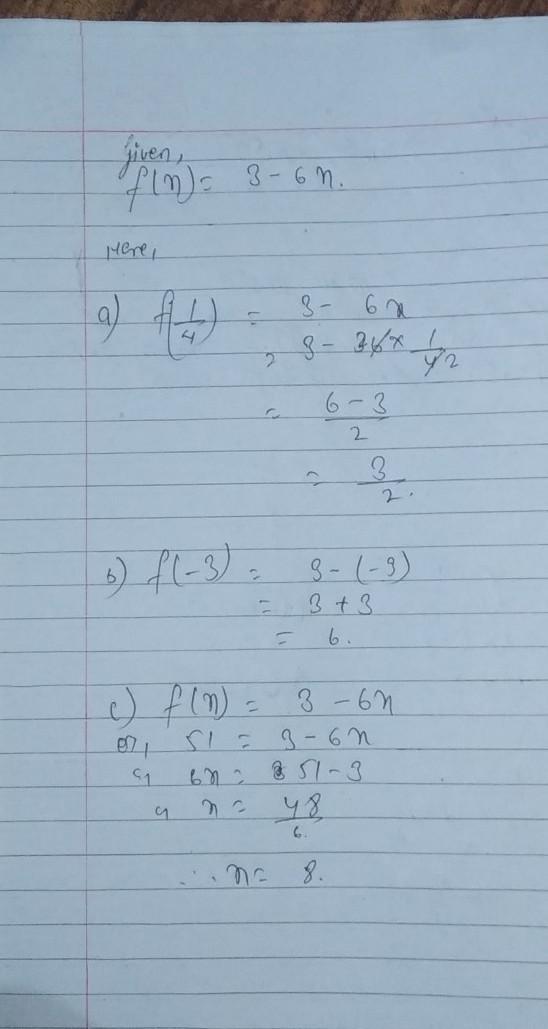 given,
f(x) = 3 - 6x.
Here,
a) f(1/4) = 3 - 6x
= 3 - 6 × 1/4 2
= 6 - 3 / 2
= 3/2.
b) f(-3) = 3 - (-3)
= 3 + 3
= 6.
c) f(x) = 3 - 6x
or, 51 = 3 - 6x
or, 6x = 51 - 3
or, x = 48/6.
∴ x = 8.